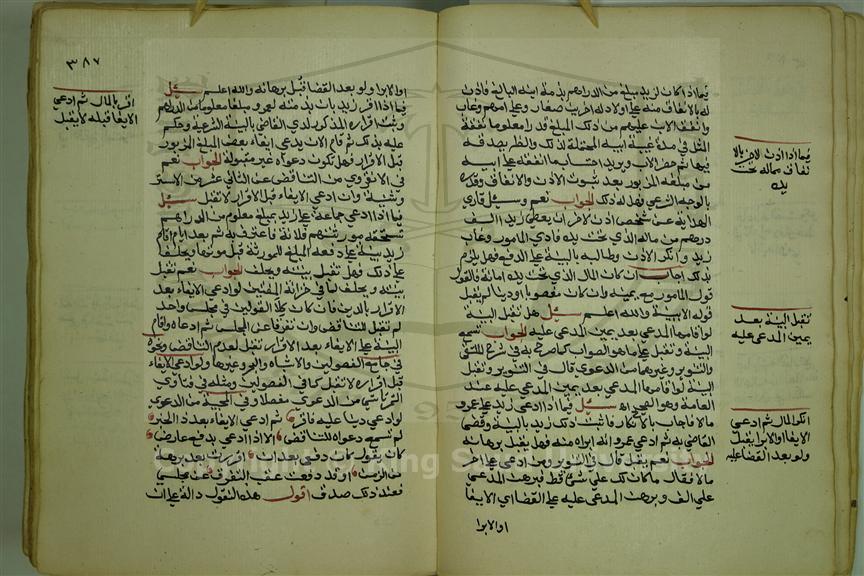 فيما اذا كان لزيد مبلغ من الدراهم بذمة ابنه البالغ فاذن
له بالانفاق منه على اولاد له اخرين صغار وعلى امهم وغاب
وانفق الابن عليهم من ذلك المبلغ قدرا معلوما نفقة
المثل في مدة غيبة ابيه المحتملة لذلك والظاهر يصدقه
فيها ثم حضر الاب ويريد احتساب ما انفقه على ابيه
من مبلغه المزبور بعد ثبوت الاذن والانفاق وقدره
بالوجه الشرعي فهل له ذلك الجواب نعم وسئل قاري
الهداية عن شخص اذن لاخر ان يعطي زيدا الف
درهم من ماله الذي تحت يده فادعى المامور وغاب
زيد وانكر الاذن وطالبه بالبينة على الدفع فهل يلزم
بذلك اجاب ان كان المال الذي تحت يده امانة فالقول
قول المامور مع يمينه وان كان مغصوبا او دينا لم يقبل
قوله الا ببينة والله اعلم سئل هل تقبل البينة
لو اقامها المدعي بعد يمين المدعى عليه الجواب تسمع
البينة وتقبل على ما هو الصواب كما صرح به في شرح الملتقى
والتنوير وغيرهما من الدعوى قال في التنوير وتقبل
البينة لو اقامها المدعي بعد يمين المدعى عليه عند
العامة وهو الصحيح اه سئل فيما اذا ادعى زيد على عمرو
مالا فاجاب بالانكار فاثبت ذلك زيد بالبينة وقضى
القاضي به ثم ادعى عمرو انه ابراه منه فهل يقبل برهانه
الجواب نعم يقبل قال في التنوير ومن ادعى على اخر
مالا فقال ما كان لك علي شيء قط فبرهن المدعي
على الف وبرهن المدعى عليه على القضا اي الايفا
او الابرا
فيما اذا اذن لاخر بالا
نفاق مماله تحت
يده
تقبل البينة بعد
يمين المدعى عليه
انكر المال ثم ادعى
الايفا او الابرا يقبل
ولو بعد القضا عليه
٣٨٧
او الابرا ولو بعد القضا قبل برهانه والله اعلم سئل
فيما اذا اقر زيد بان بذمته لعمرو مبلغا معلوما من الدراهم
وثبت اقراره المذكور لدى القاضي بالبينة الشرعية وحكم
عليه بذلك ثم قام الان يدعي ايفاء بعض المبلغ المزبور
قبل الاقرار فهل تكون دعواه غير مقبولة الجواب نعم
في الانقروي من التناقض عن الثاني عشر من الاستر
وشنية وان ادعى الايفاء قبل الاقرار لا تقبل سئل
فيما اذا ادعى جماعة على زيد بمبلغ معلوم من الدراهم
تستحقه مورثتهم فلانة فاعترف به ثم بعد ايام اقام
زيد بينة على دفعه المبلغ للمورثة قبل موتها ويحلف
على ذلك فهل تقبل بينته ويحلف الجواب نعم تقبل
بينته ويحلف لما في خزانة المفتين لو ادعى الايفاء بعد
الاقرار بالدين فان كان كلا القولين في مجلس واحد
لم تقبل للتناقض وان تفرقا عن المجلس ثم ادعاه واقام
البينة على الايفاء بعد الاقرار تقبل لعدم التناقض ونحوه
في جامع الفصولين والاشباه والبحر وغيرها ولو ادعى الايفاء
قبل اقراره لا تقبل كما في الفصولين ومثله في فتاوى
التمرتاشي من الدعوى مفصلا وفي المجتبى من الدعوى
لو ادعى دينا عليه فاقر ثم ادعى الايفاء بعد ذا الخبر
لم تسمع دعواه للتناقض الا اذا ادعى بدفع عارض
كان يقول كان دفعي بعد ان اقررت بعد برهة
من الزمن او قد دفعت عقب التفرق عن مجلسي
فعند ذلك صدق اقول هذه النقول دالة على ان
اقر بالمال ثم ادعى
الايفا قبله لا يقبل